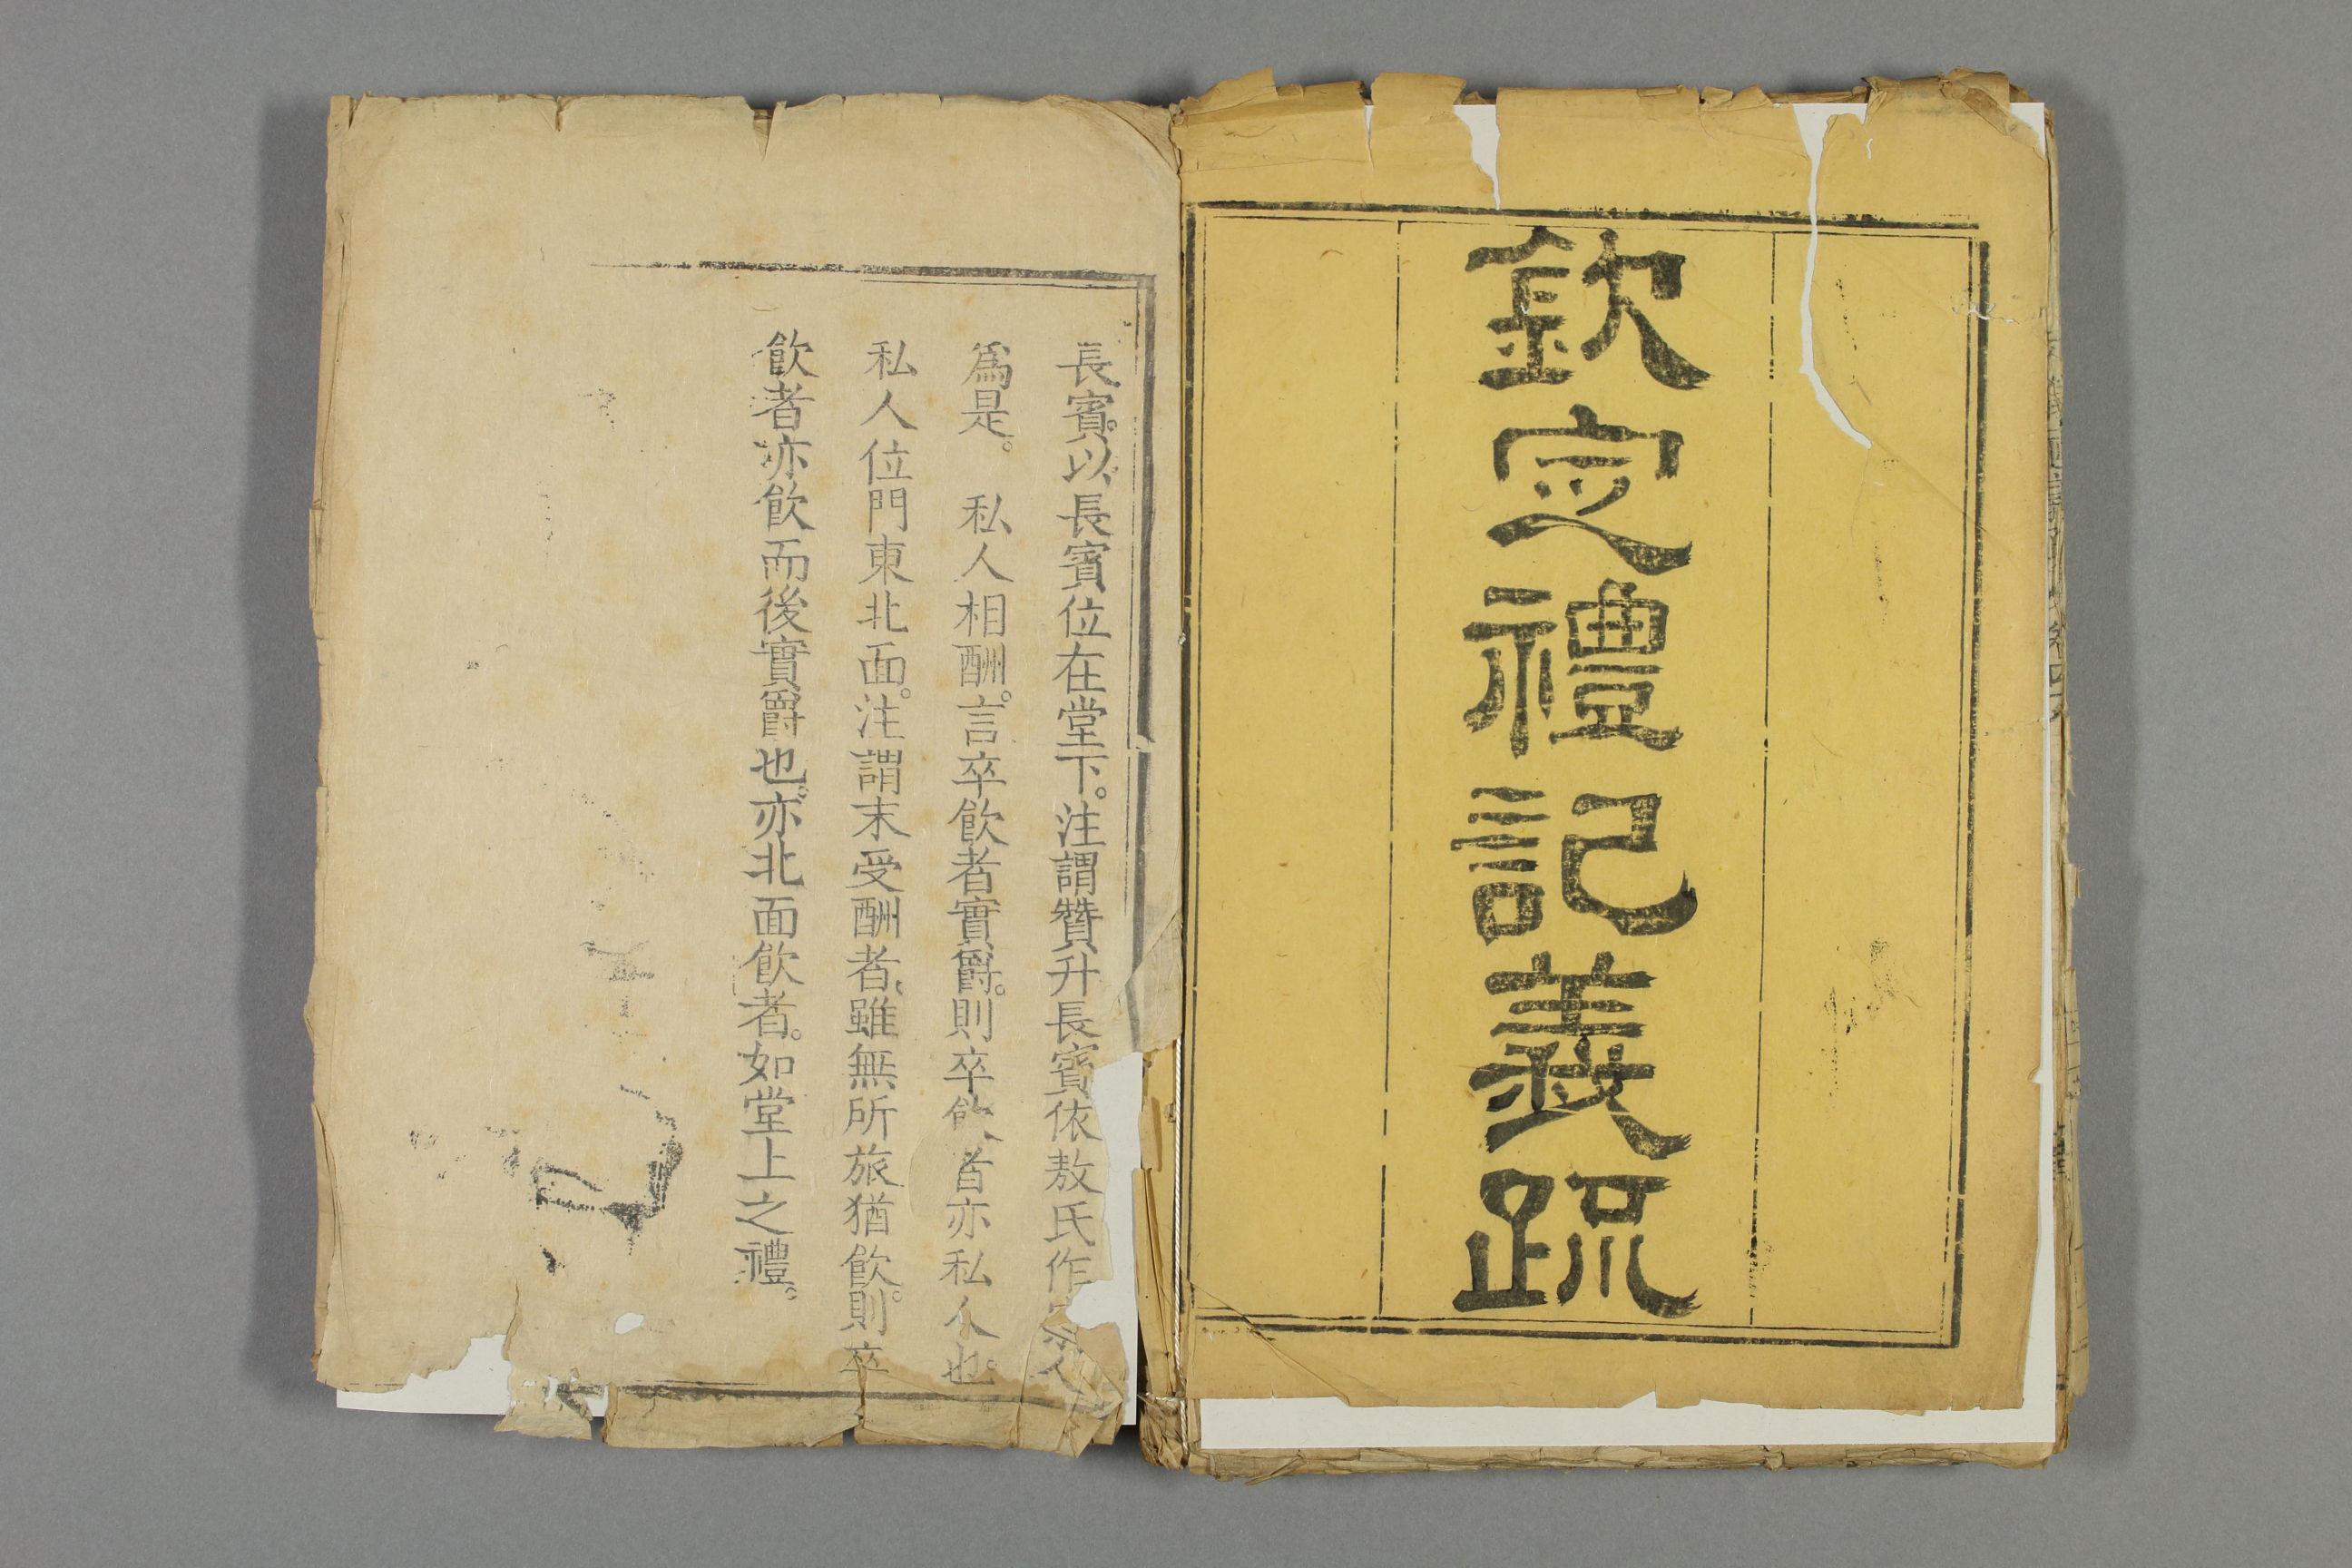 欽定禮記義疏
長賓。以長賓位在堂下。注謂贊升長賓依敖氏作
爲是。　私人相酬。言卒飲者實爵。則卒飲者亦私人也。
私人位門東北面。注謂末受酬者。雖無所旅猶飲。則卒
飲者亦飲而後實爵也。亦北面飲者。如堂上之禮。